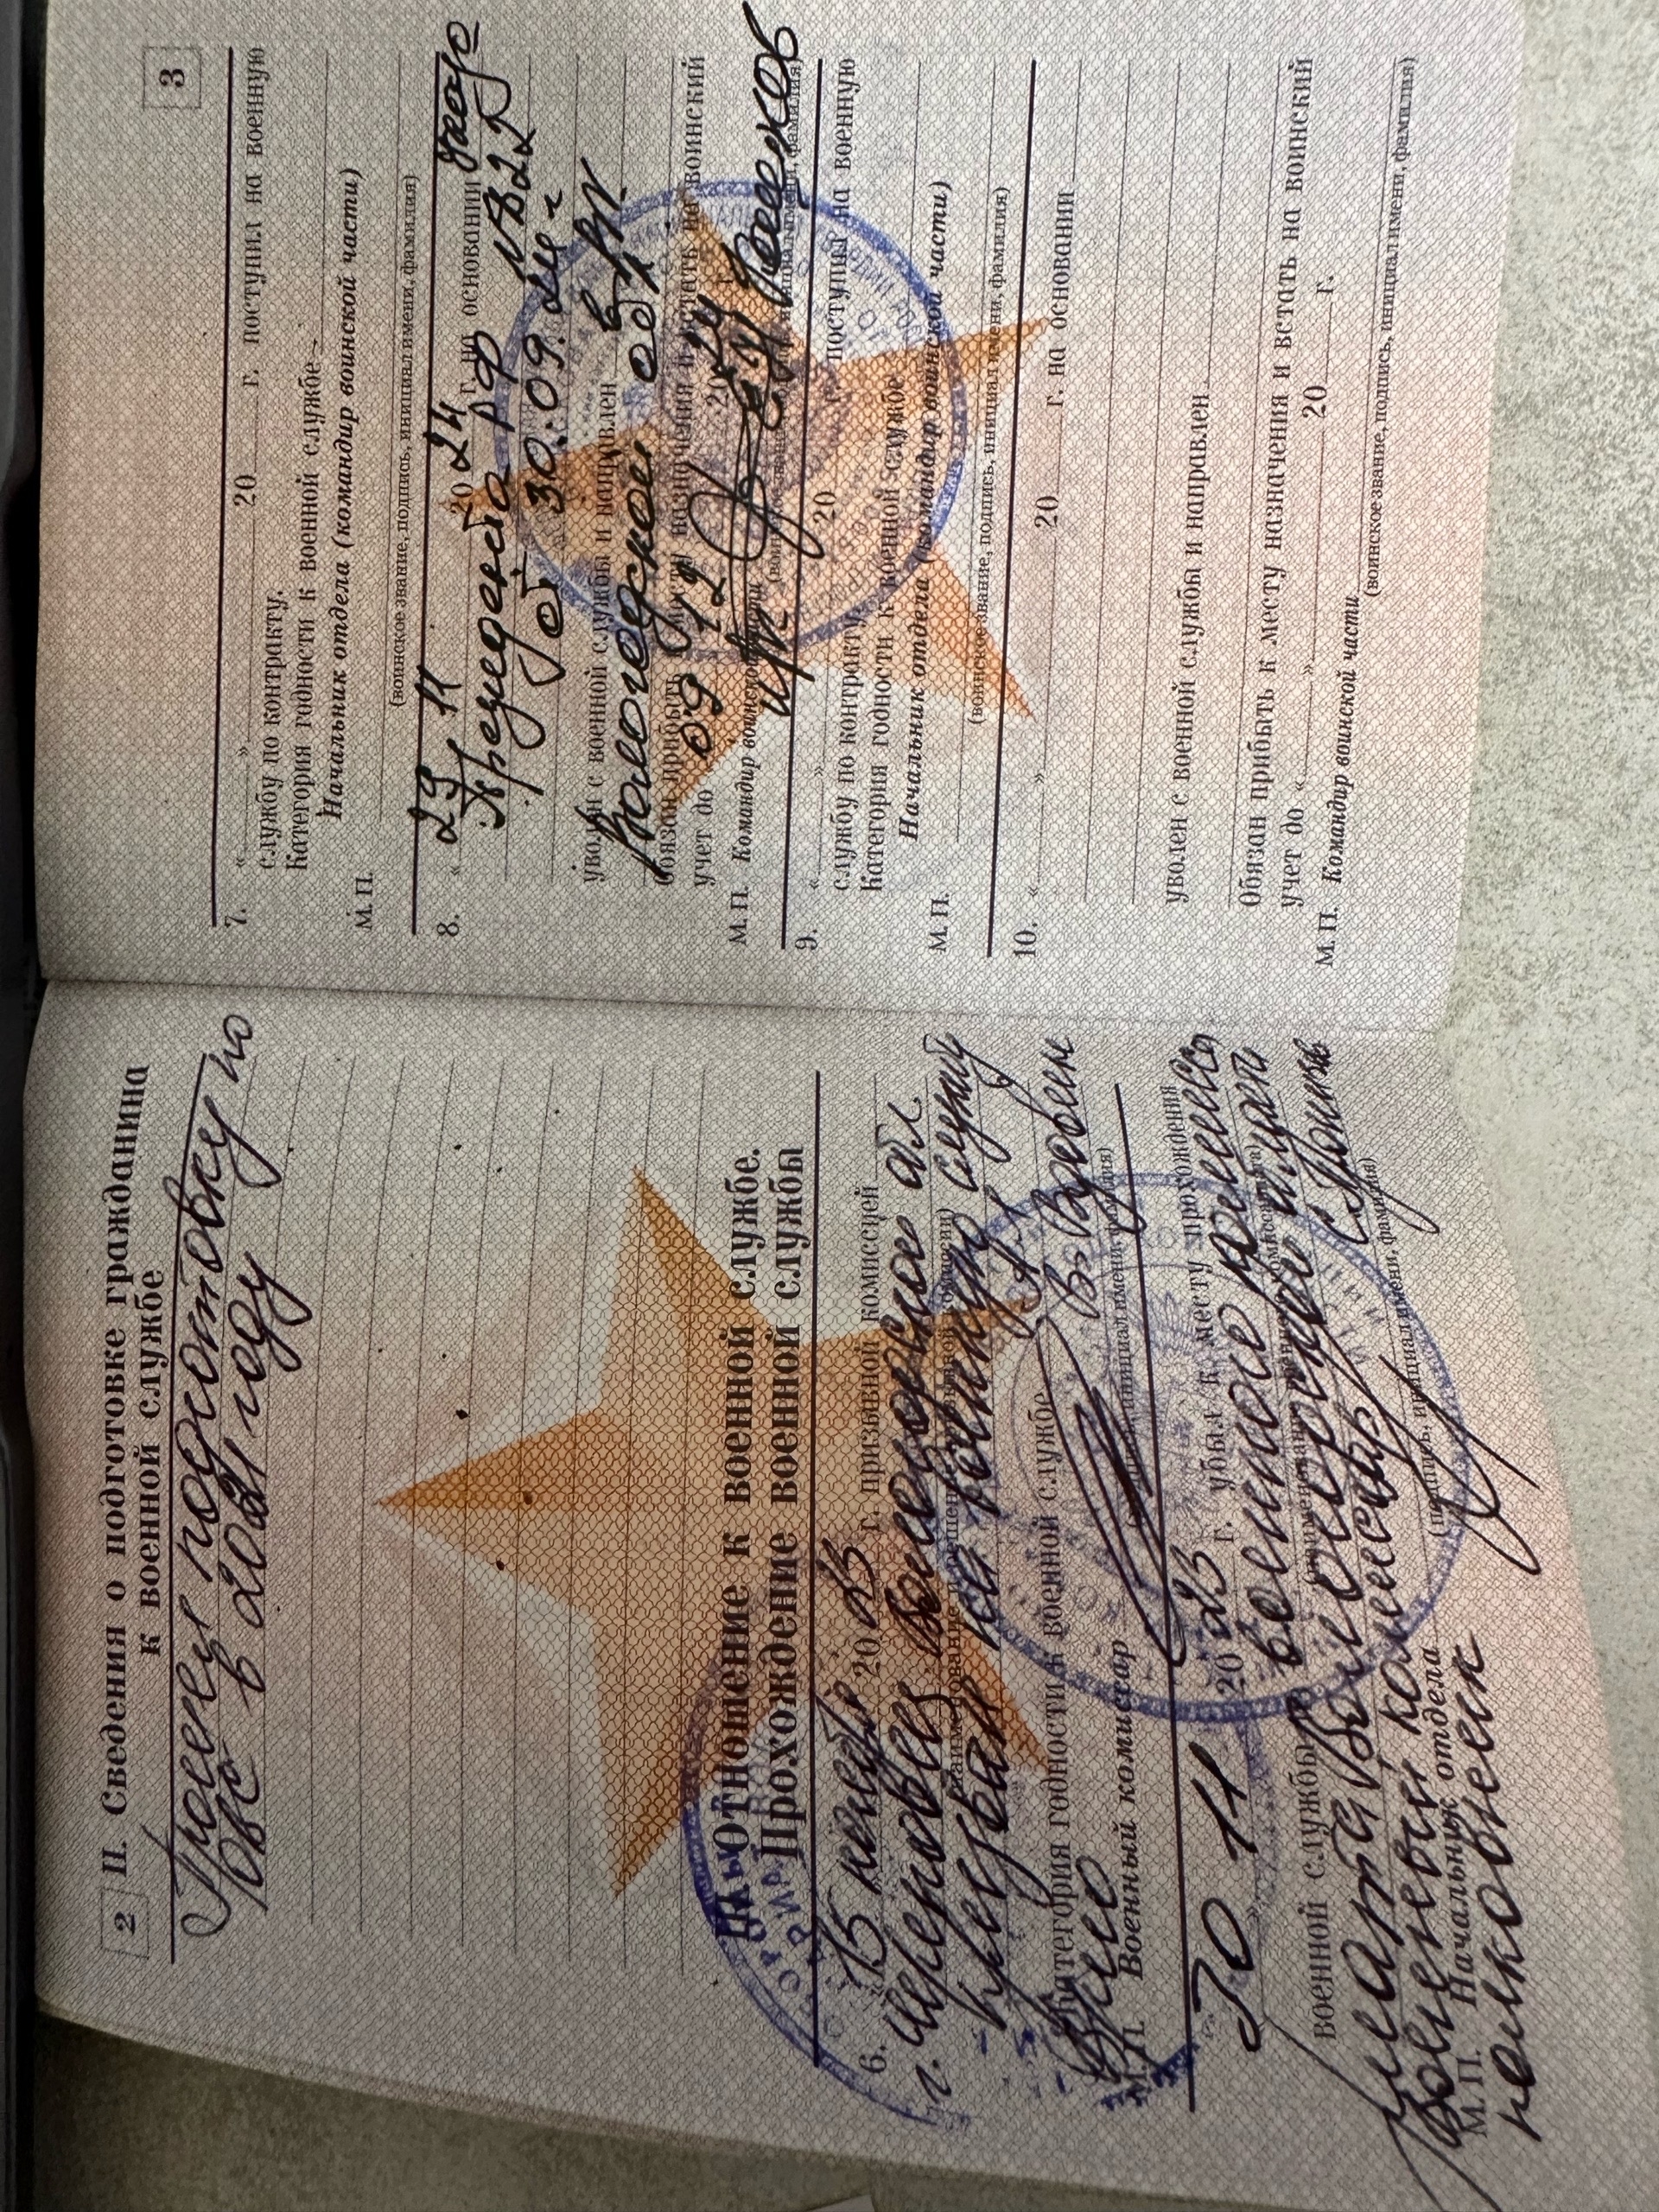 2
II. Сведения о подготовке гражданина
к военной службе
Прошел подготовку по
ОВС в 2021 году
III. Отношение к военной службе.
Прохождение военной службы
6. «15» ноября 2023 г. призывной комиссией
г. Череповец Вологодской обл.
(наименование призывной комиссии)
призван на военную службу
Категория годности к военной службе
М.П. Военный комиссар
В. Вдовин
«30» 11 2023 г. убыл к месту прохождения
военной службы
(наименование военного комиссариата)
Военный комиссар
М.П. Начальник отдела
(подпись, инициал имени, фамилия)
полковник
3
7. « » 20 г. поступил на военную
службу по контракту.
Категория годности к военной службе
Начальник отдела (командир воинской части)
М.П.
(воинское звание, подпись, инициал имени, фамилия)
8. «29» 11 2024 г. на основании Указа
Президента РФ №822
от 30.09.24 г.
уволен с военной службы и направлен в ВК
Вологодской обл
Обязан прибыть к месту назначения и встать на воинский
учет до «09» 12 2024 г.
М.П. Командир воинской части
(воинское звание, подпись, инициал имени, фамилия)
9. « » 20 г. поступил на военную
службу по контракту.
Категория годности к военной службе
Начальник отдела (командир воинской части)
М.П.
(воинское звание, подпись, инициал имени, фамилия)
10. « » 20 г. на основании
уволен с военной службы и направлен
Обязан прибыть к месту назначения и встать на воинский
учет до « » 20 г.
М.П. Командир воинской части
(воинское звание, подпись, инициал имени, фамилия)